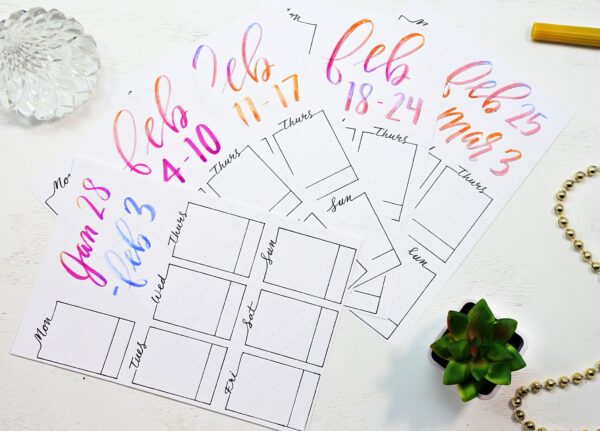 Jan 28
-feb 3
Mon
Tues
Wed
Thurs
Fri
Sat
Sun
Mo
feb
4-10
Thurs
feb
11-17
Thurs
Sun
feb
18-24
Thurs
Sun
feb 25
mar 3
Thurs